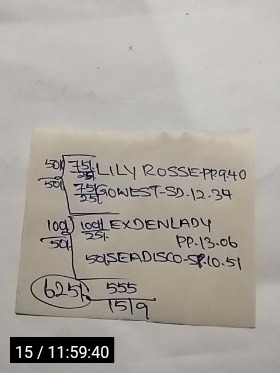 50/ 75/. LILY ROSSE-PP.9.40
25/.
50/ 75/ GOWEST-SD.12.34
25/
100/ 100/ LEXDENLADY
50/ 25/. PP.13.06
50/ SEADISCO-SP.10.51
625/. 555
1519
15 / 11:59:40